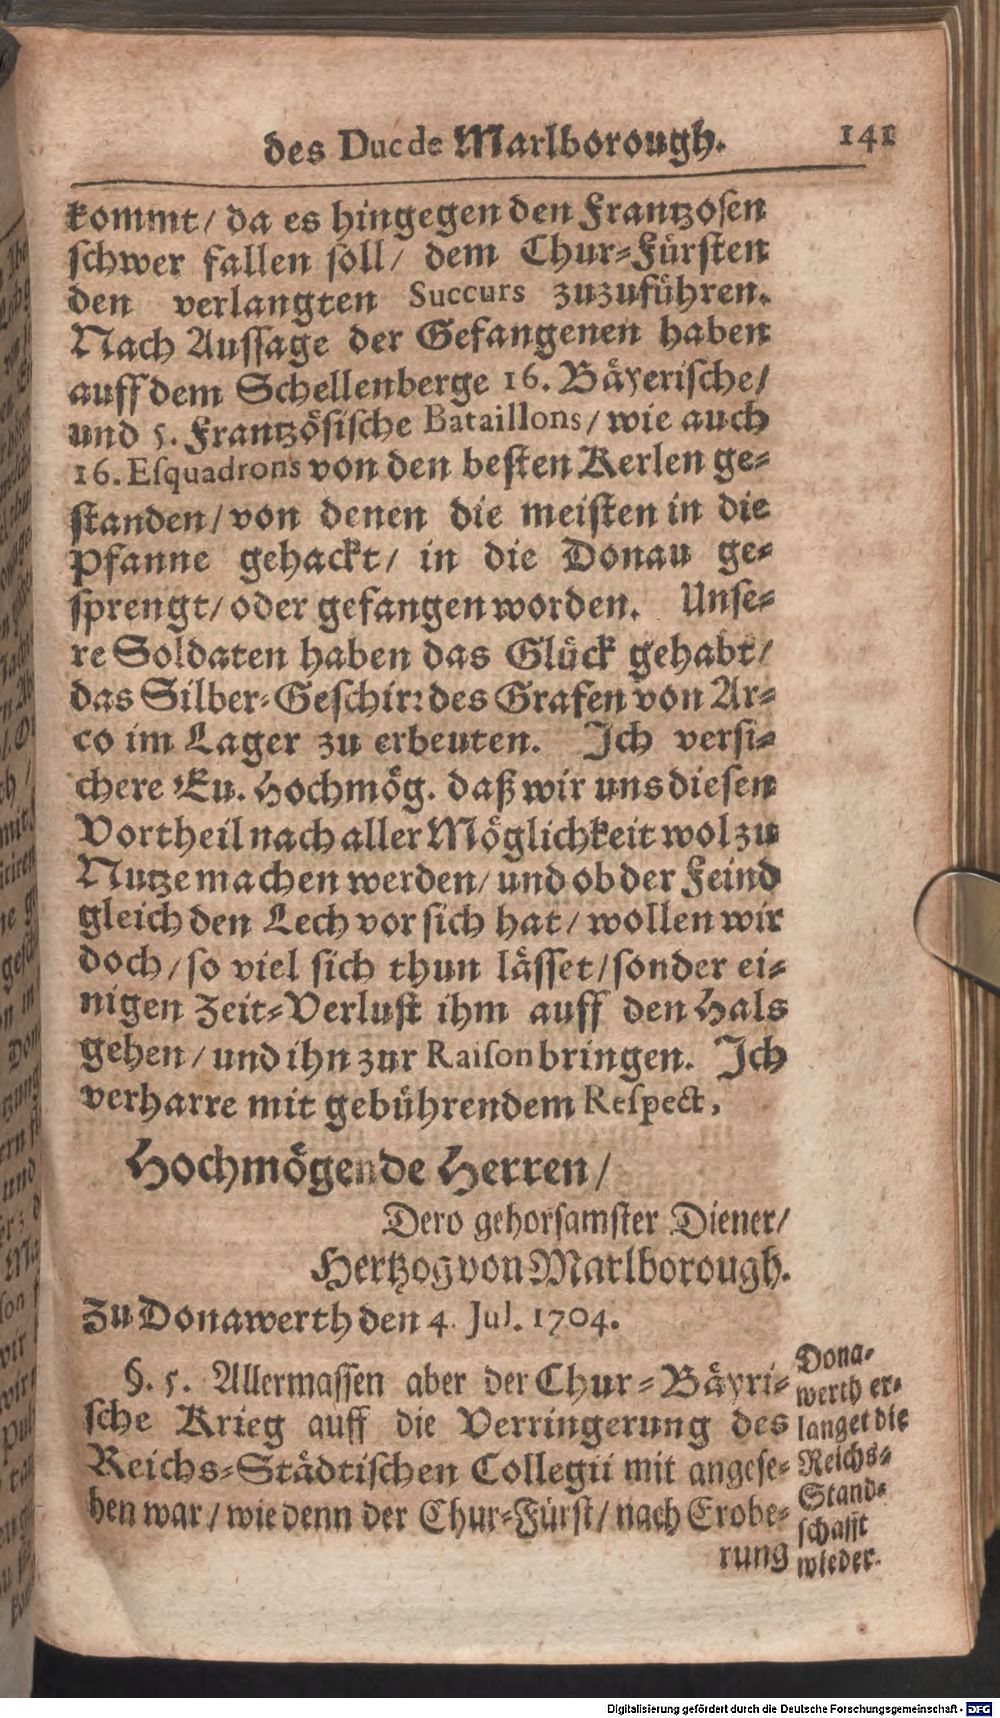 des Duc de Marlborough. 141
kommt/ da es hingegen den Frantzosen
schwer fallen soll/ dem Chur-Fürsten
den verlangten Succurs zuzuführen.
Nach Aussage der Gefangenen haben
auff dem Schellenberge 16. Bäyerische/
und 5. Frantzösische Bataillons/ wie auch
16. Esquadrons von den besten Kerlen ge-
standen/ von denen die meisten in die
Pfanne gehackt/ in die Donau ge-
sprengt/ oder gefangen worden. Unse-
re Soldaten haben das Glück gehabt/
das Silber-Geschirr des Grafen von Ar-
co im Lager zu erbeuten. Ich versi-
chere Eu. Hochmög. daß wir uns diesen
Vortheil nach aller Möglichkeit wol zu
Nutze machen werden/ und ob der Feind
gleich den Lech vor sich hat/ wollen wir
doch/ so viel sich thun lässet/ sonder ei-
nigen Zeit-Verlust ihm auff den Hals
gehen/ und ihn zur Raison bringen. Ich
verharre mit gebührendem Respect,
Hochmögende Herren/
Dero gehorsamster Diener/
Hertzog von Marlborough.
Zu Donawerth den 4. Jul. 1704.
§. 5. Allermassen aber der Chur-Bäyri-
sche Krieg auff die Verringerung des
Reichs-Städtischen Collegii mit angese-
hen war/ wie denn der Chur-Fürst/ nach Erobe-
rung
Dona-
werth er-
langet die
Reichs-
Stand-
schafft
wieder.
Digitalisierung gefördert durch die Deutsche Forschungsgemeinschaft - DFG